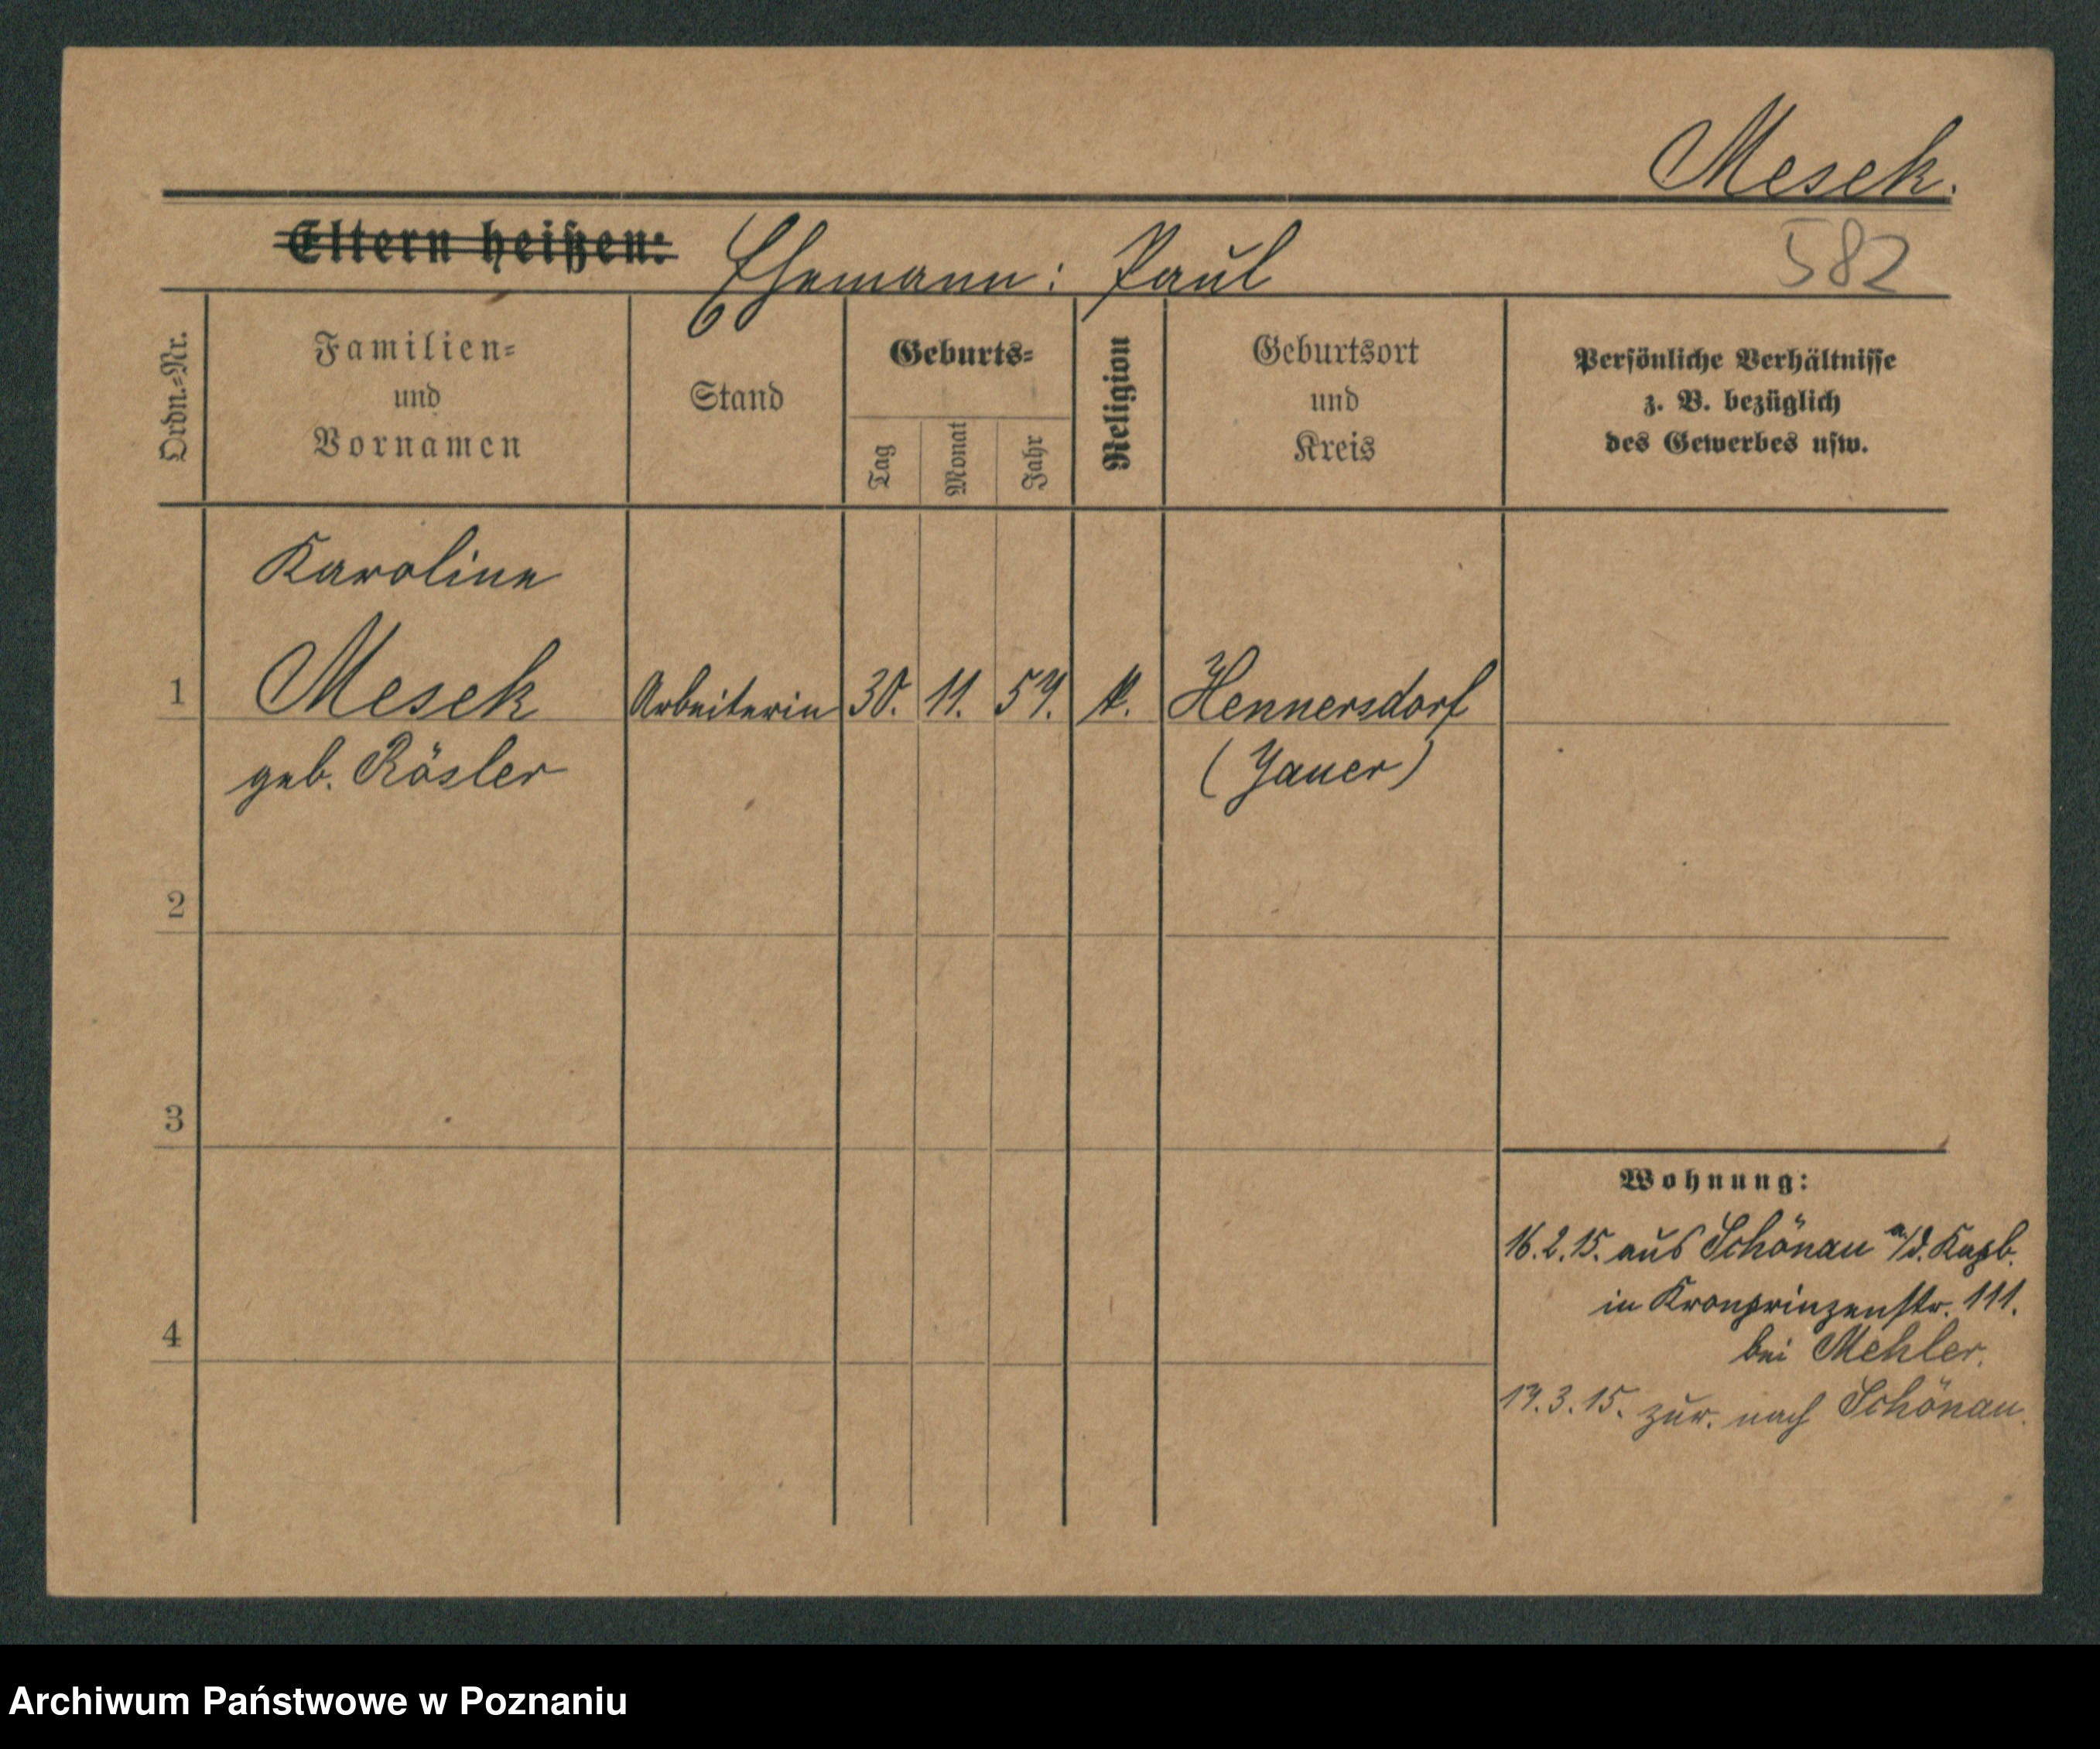 Mesek.
Eltern heißen: Ehemann: Paul 582
Ordn.-Nr.
Familien-
und
Vornamen
Stand
Geburts-
Tag
Monat
Jahr
Religion
Geburtsort
und
Kreis
Persönliche Verhältnisse
z. B. bezüglich
des Gewerbes usw.
Karoline
1 Mesek Arbeiterin 30. 11. Hennersdorf
geb. Rösler (Jauer)
2
3
Wohnung:
16.2.15. aus Schönau a/d. Kapb.
in Kronprinzenstr. 111.
4 bei Mehler.
17.3.15. zur. nach Schönau.
Archiwum Państwowe w Poznaniu